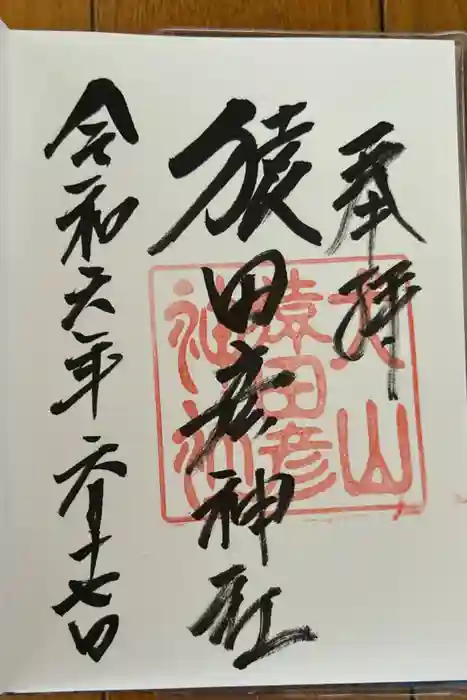 奉拝
猿田彦神社
令和六年六月十七日
大山
猿田彦
神社